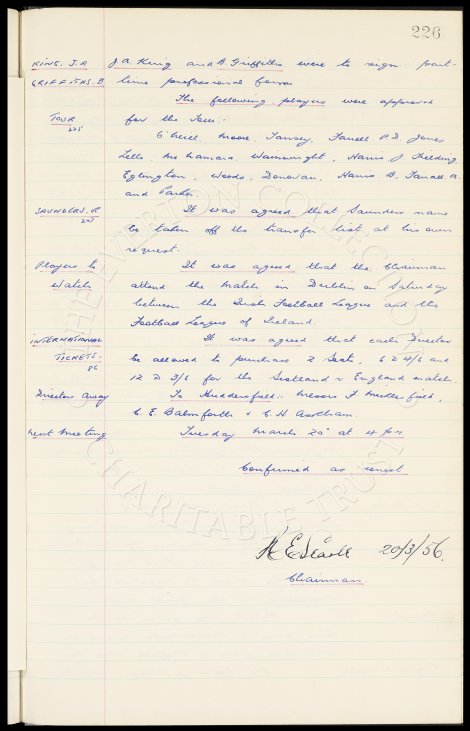 226
KING. J.A J.A King and B. Griffiths were to sign part-
GRIFFITHS. B. time professional forms
The following players were approved
TOUR for the Tour.
225 O'Neill, Moore, Tansey, Farrell P.D, Jones
Lello, McNamara, Wainwright, Harris J Fielding
Eglington, Woods, Donovan, Harris B. Farrell A.
and Parker.
SAUNDERS. R It was agreed that Saunders name
be taken off the transfer list at his own
request.
Players to It was agreed that the Chairman
Watch attend the match in Dublin on Saturday
between the Irish Football League and the
Football League of Ireland.
INTERNATIONAL It was agreed that each Director
TICKETS. be allowed to purchase 2 seats, 6 @ 4/6 and
86 12 @ 3/6 for the Scotland v England match.
Directors away To Huddersfield: Messrs F Micklesfield,
C. E. Balmforth & C. H. Askham.
Next Meeting Tuesday March 20th at 4 p.m
Confirmed as correct
R. E. Searle 20/3/56.
Chairman.
THE EVERTON COLLECTION
CHARITABLE TRUST